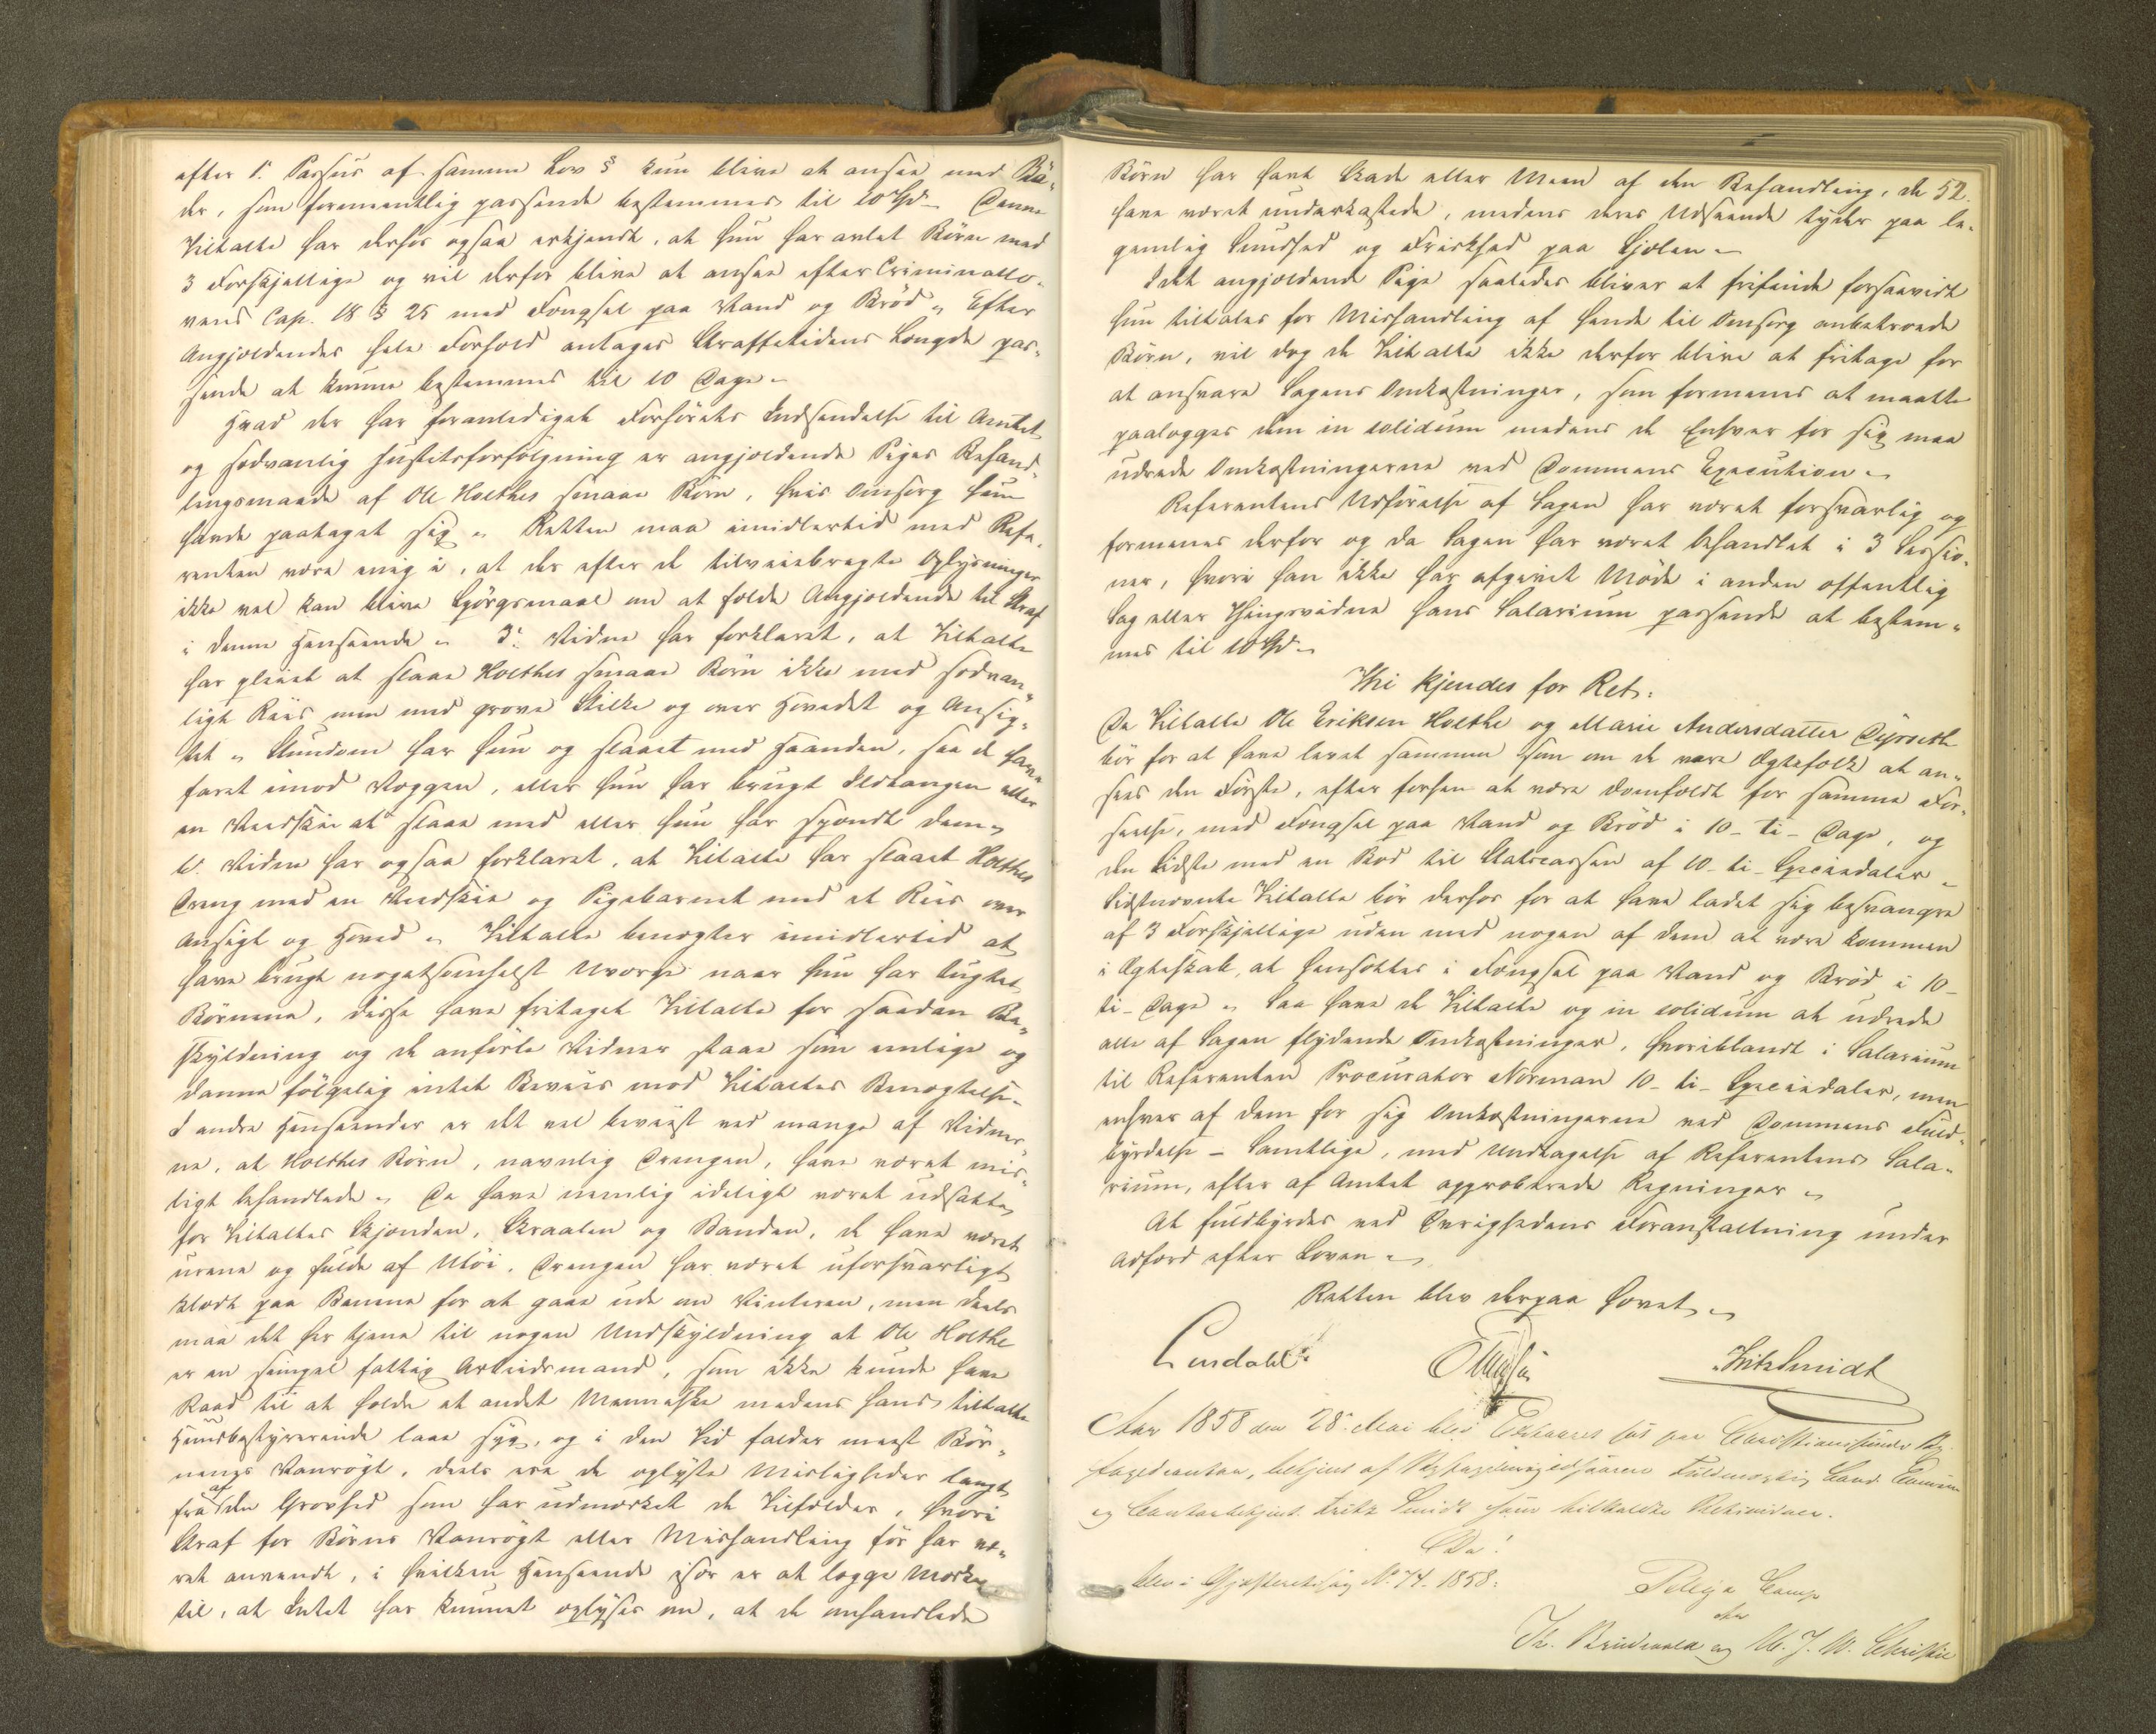 efter 1ᵉ Passus af samme Lov § kun blive at ansee med Bö-
der, som formeentlig passende bestemmes til 10 Spd. Denne
Tiltalte har derhos ogsaa erkjendt, at hun har avlet Börn med
3 Forskjellige og vil derfor blive at ansee efter Criminallo-
vens Cap. 18 § 25 med Fængsel paa Vand og Bröd. Efter
Angjeldendes hele Forhold antages Straffetidens Længde pas-
sende at kunne bestemmes til 10 Dage.
Hvad der har foranlediget Forhörets Indsendelse til Amtet
og sædvanlig Justitsforfölgning er angjeldende Piges Behand-
lingsmaade af Ole Holthes smaae Börn, hvis Omsorg hun
havde paataget sig. Retten maa imidlertid med Refe-
renten være enig i, at der efter de tilveiebragte Oplysninger
ikke vel kan blive Spörgsmaal om at fælde Angjeldende til Straf
i denne Henseende. 3ᵈ Vidne har forklaret, at Tiltalte
har pleiet at slaae Holthes smaae Börn ikke med sædvan-
ligt Riis men med grove Stilke og over Hovedet og Ansig-
tet. Stundom har hun og slaaet med Haanden, saa de have
faret imod Væggen, eller hun har brugt Ildtangen eller
en Vedskie at slaae med eller hun har spændt dem.
6ᵗ Vidne har ogsaa forklaret, at Tiltalte har slaaet Holthes
Dreng med en Vedskie og Pigebarnet med et Riis over
Ansigt og Hoved. Tiltalte benægter imidlertid at
have brugt nogetsomhelst Uvorse naar hun har tugtet
Börnene, disse have fritaget Tiltalte for saadan Be-
skyldning og de anförte Vidner staae som enlige og
danne fölgelig intet Beviis mod Tiltaltes Benægtelse.
I andre Henseender er det vel beviist ved mange af Vidner-
ne, at Holthes Börn, navnlig Drengen, have været mis-
ligt behandlede. De have nemlig ideligt været udsatte
for Tiltaltes Skjænden, Skraalen og Banden, de have været
urene og fulde af Utöi. Drengen har været uforsvarligt
klædt paa Benene for at gaae ude om Vinteren, men deels
maa det her tjene til nogen Undskyldning at Ole Holthe
er en simpel fattig Arbeidsmand, som ikke kunde have
Raad til at holde et andet Menneske medens hans tiltalte
Huusbestyrerinde laae syg, og i den Tid falder meest Bör-
nenes Vanrögt, deels ere de oplyste Misligheder langt
fra af den Grovhed som har udmærket de Tilfælder, hvori
Straf for Börns Vanrögt eller Mishandling för har væ-
ret anvendt, i hvilken Henseende især er at lægge Mærke
til, at Intet har kunnet oplyses om, at de omhandlede
Börn har havt Skade eller Meen af den Behandling, de 52.
have været underkastede, medens deres Udseende tyder paa le-
gemlig Sundhed og Friskhed paa Sjælen.
Idet angjeldende Pige saaledes bliver at frifinde forsaavidt
hun tiltales for Mishandling af hende til Omsorg anbetroede
Börn, vil dog de Tiltalte ikke derfor blive at fritage for
at ansvare Sagens Omkostninger, som formenes at maatte
paalægges dem in solidum medens de Enhver for sig maa
udrede Omkostningerne ved Dommens Execution.
Referentens Udförelse af Sagen har været forsvarlig og
formenes derfor og da Sagen har været behandlet i 3 Sessio-
ner, hvori han ikke har afgivet Möde i anden offentlig
Sag eller Thingsvidne hans Salarium passende at bestem-
mes til 10 Spd.
Thi kjendes for Ret:
De Tiltalte Ole Eriksen Holthe og Marie Andersdatter Dyrseth
bör for at have levet sammen som om de vare Ægtefolk at an-
sees den Förste, efter forhen at være domfældt for samme For-
seelse, med Fængsel paa Vand og Bröd i 10 – ti – Dage, og
den Sidste med en Bod til Statscassen af 10 – ti – Speciedaler.
Sidstnævnte Tiltalte bör derhos for at have ladet sig besvangre
af 3 Forskjellige uden med nogen af dem at være kommen
i Ægteskab, at hensættes i Fængsel paa Vand og Bröd i 10 –
ti – Dage. Saa have de Tiltalte og in solidum at udrede
alle af Sagen flydende Omkostninger, hvoriblandt i Salarium
til Referenten Procurator Norman 10 – ti – Speciedaler, men
enhver af dem for sig Omkostningerne ved Dommens Fuld-
byrdelse – Samtlige, med Undtagelse af Referentens Sala-
rium, efter af Amtet approberede Regninger.
At fuldbyrdes ved Övrighedens Foranstaltning under
Adfærd efter Loven.
Retten blev derpaa hævet.
Lindahl
Fritz Smidt
Aar 1858 den 28ᵈᵉ Mai blev Extraret sat paa Christianssunds By-
fogedcontor, betjent af Byfogdens edsvorne Fuldmægtig Cand.
og Contorbetjent Fritz Smidt som tilkaldte Retsvidner.
Da:
blev i Gjæsteretssag Nº 74 – 1858:
Camp
og W. F. K. Christie